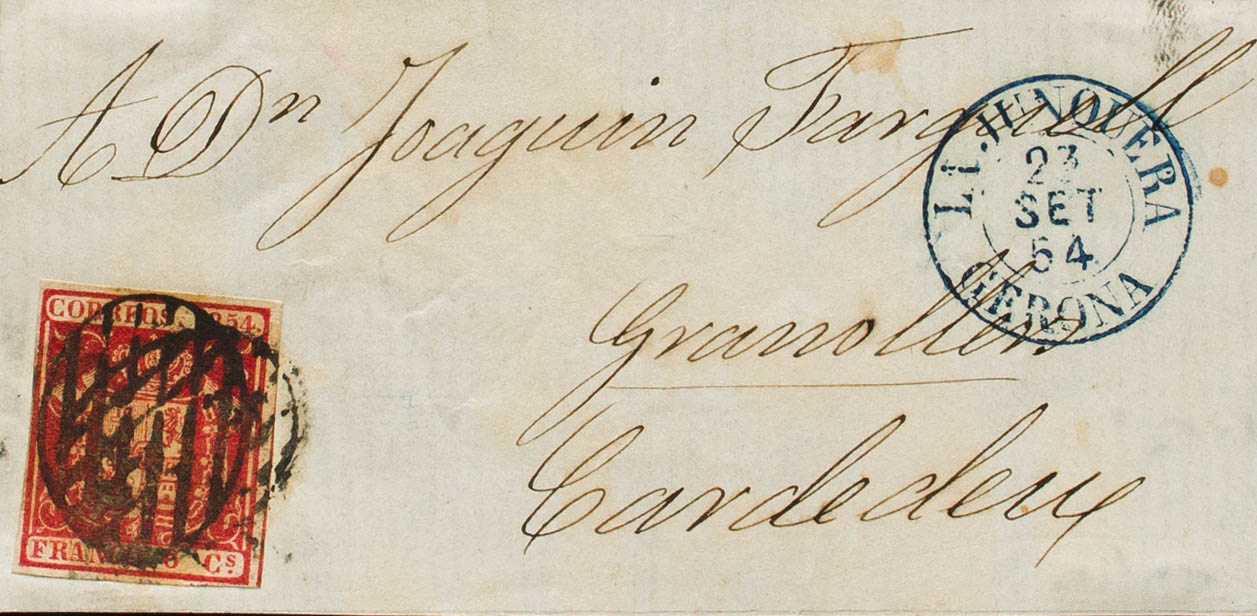 A Dn Joaquin Farguell
LA JUNQUERA
23
SET
54
GERONA
Granollers
Cardedeu
CORREOS. 1854.
FRANCO 6 Cs